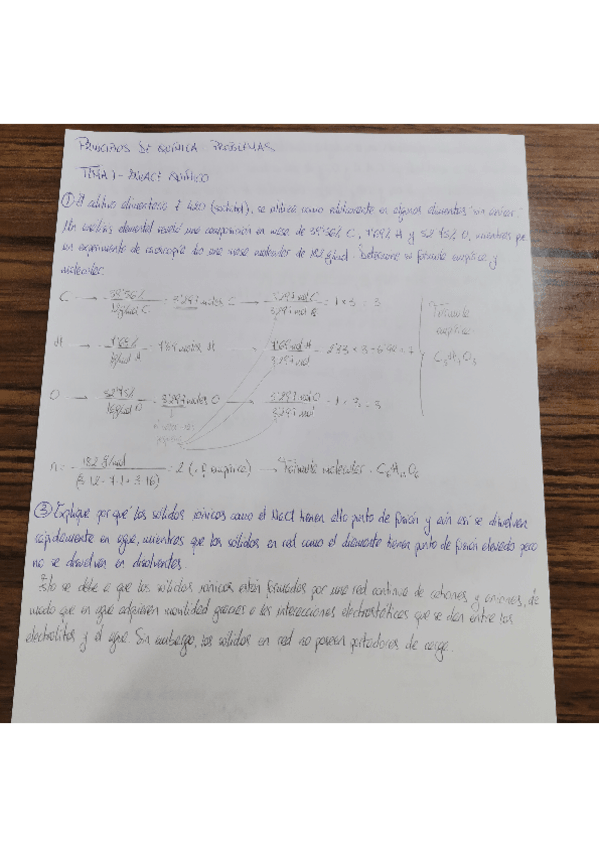 PRINCIPIOS DE QUÍMICA. PROBLEMAS
TEMA 1 - ENLACE QUÍMICO
① El aditivo alimentario E 420 (sorbitol), se utiliza como edulcorante en algunos alimentos "sin azúcar".
Un análisis elemental reveló una composición en masa de 39'56% C, 7'69% H y 52'75% O, mientras que
un experimento de crioscopia dio una masa molecular de 182 g/mol. Determine su fórmula empírica y
molecular.
C → 39'56% / 12 g/mol C = 3'297 moles C → 3'297 mol C / 3'297 mol = 1 x 3 = 3
Fórmula
empírica
H → 7'69% / 1 g/mol H = 7'69 moles H → 7'69 mol H / 3'297 mol = 2'33 x 3 = 6'99 = 7
C₃H₇O₃
O → 52'75% / 16 g/mol O = 3'297 moles O → 3'297 mol O / 3'297 mol = 1 x 3 = 3
n = 182 g/mol / (3·12 + 7·1 + 3·16) = 2 (f. empírica) → Fórmula molecular = C₆H₁₄O₆
③ Explique por qué los sólidos iónicos como el NaCl tienen alto punto de fusión y aún así se disuelven
rápidamente en agua, mientras que los sólidos en red como el diamante tienen punto de fusión elevado pero
no se disuelven en disolventes.
Esto se debe a que los sólidos iónicos están formados por una red continua de cationes y aniones, de
modo que en agua adquieren movilidad gracias a las interacciones electrostáticas que se dan entre los
electrolitos y el agua. Sin embargo, los sólidos en red no poseen portadores de carga.